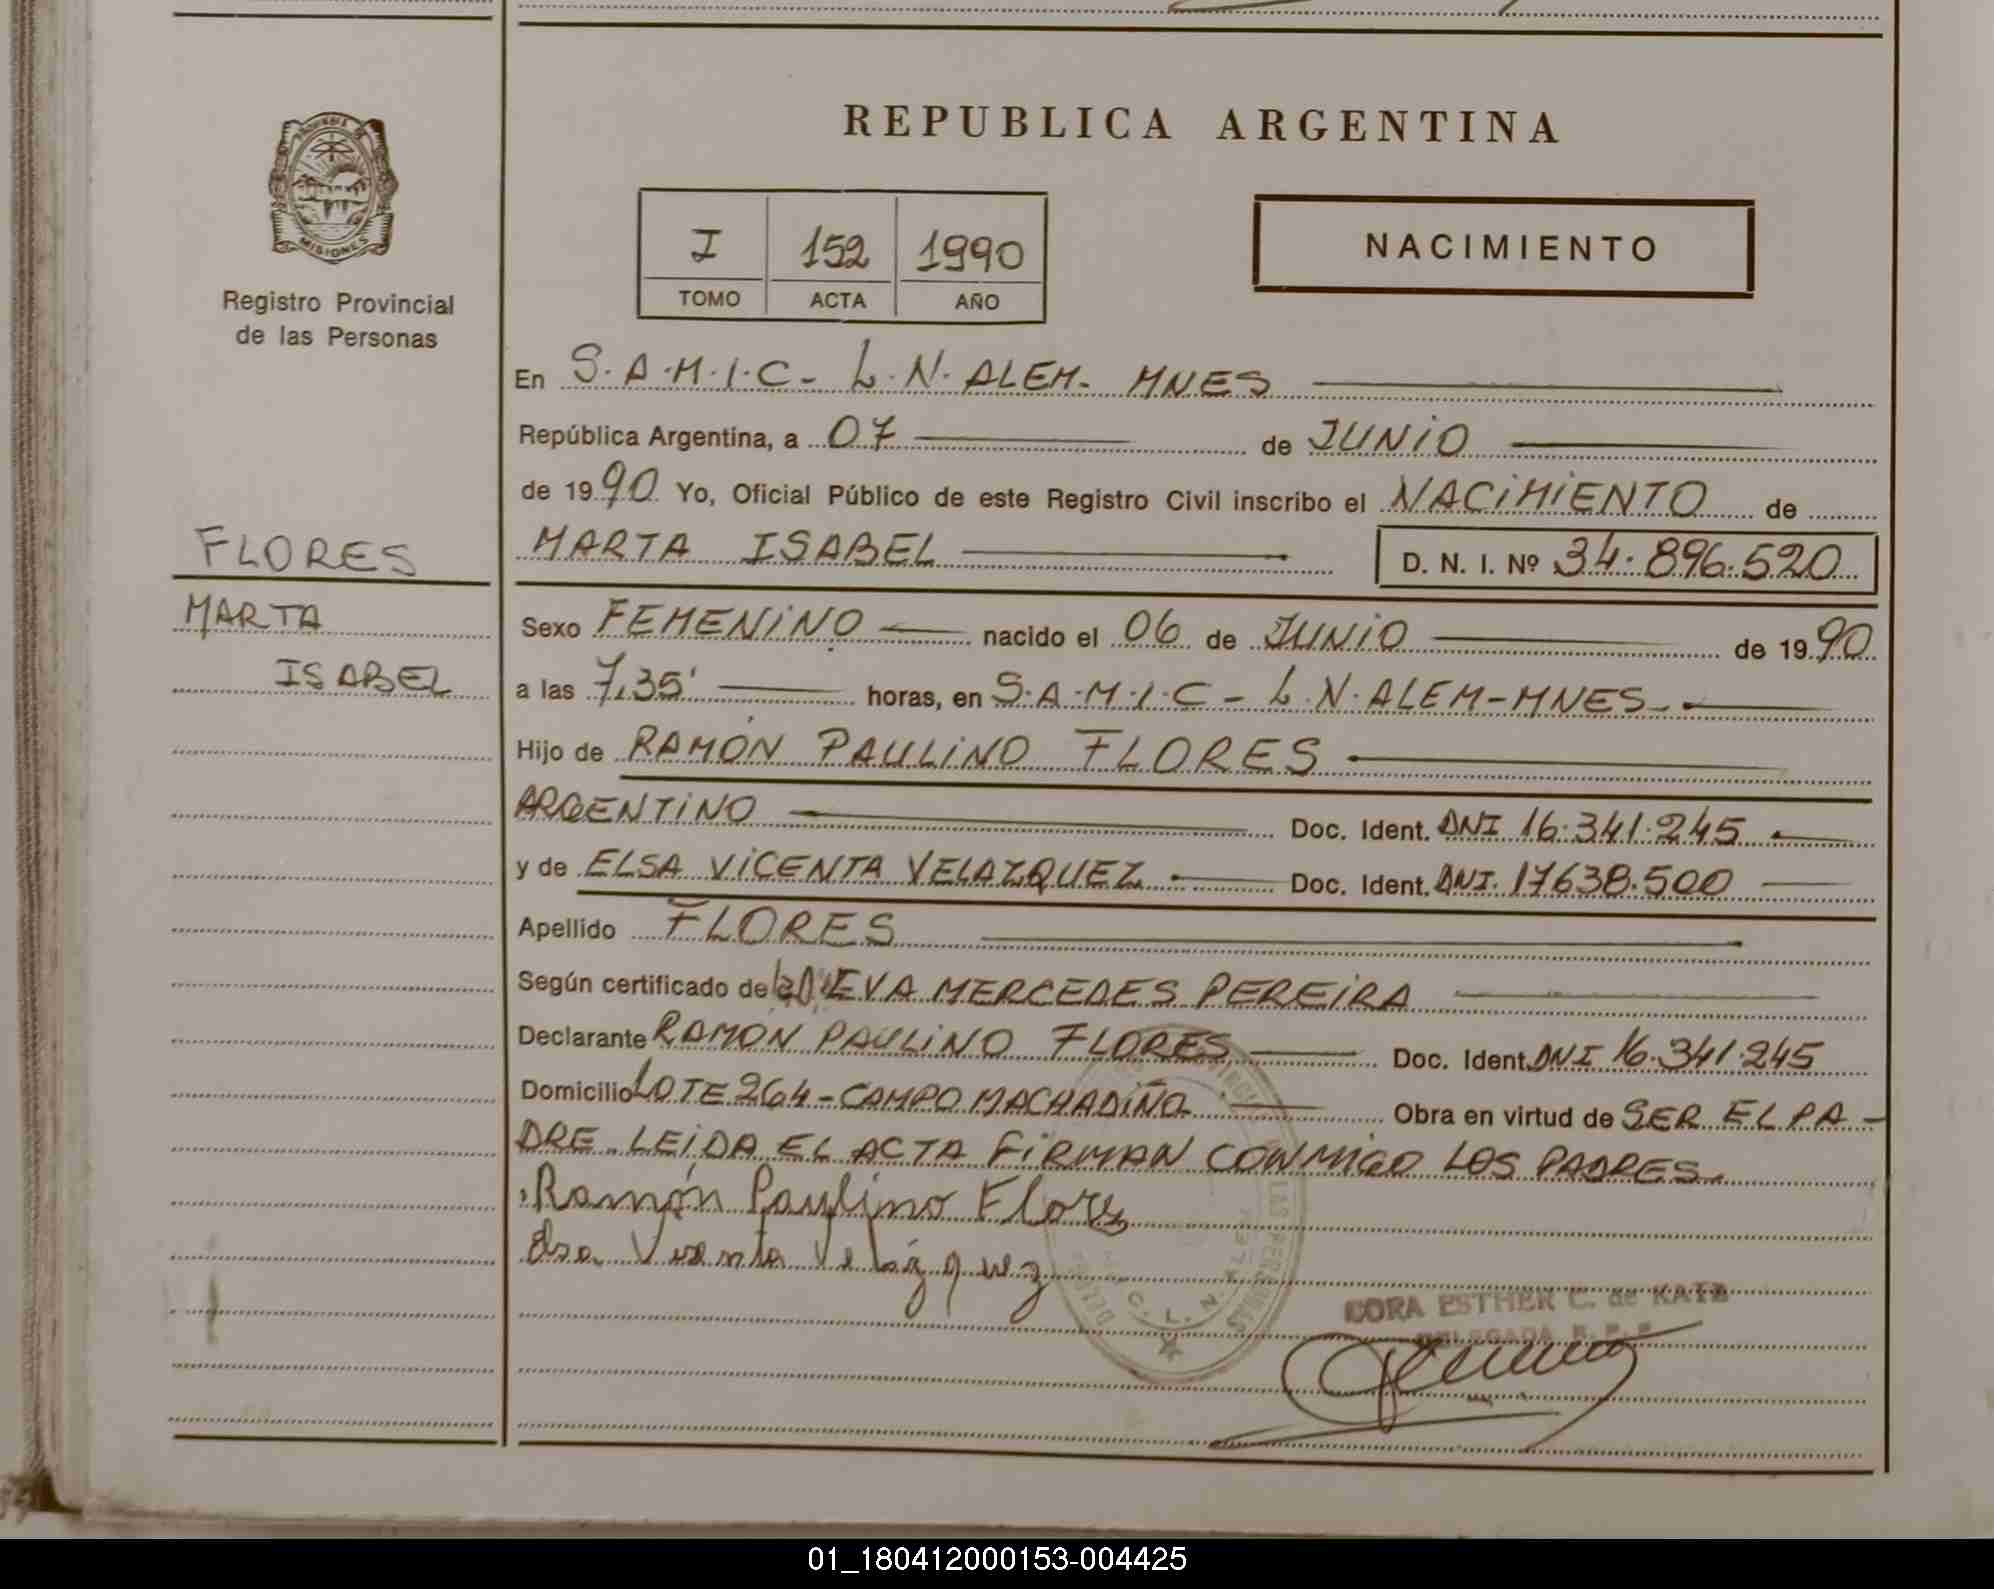 REPUBLICA ARGENTINA
MISIONES
Registro Provincial
de las Personas
I 152 1990
TOMO ACTA AÑO
NACIMIENTO
FLORES
MARTA
ISABEL
En S.A.M.I.C- L.N. ALEM. MNES
República Argentina, a 07 de JUNIO
de 1990 Yo, Oficial Público de este Registro Civil inscribo el NACIMIENTO de
MARTA ISABEL D. N. I. Nº 34.896.520
Sexo FEMENINO nacido el 06 de JUNIO de 1990
a las 7,35' horas, en S.A.M.I.C - L.N. ALEM-MNES-
Hijo de RAMÓN PAULINO FLORES
ARGENTINO Doc. Ident. DNI 16.341.245
y de ELSA VICENTA VELAZQUEZ Doc. Ident. DNI. 17638.500
Apellido FLORES
Según certificado de EVA MERCEDES PEREIRA
Declarante RAMÓN PAULINO FLORES Doc. Ident. DNI 16.341.245
Domicilio LOTE 264-CAMPO MACHADIÑO Obra en virtud de SER EL PA-
DRE. LEIDA EL ACTA FIRMAN CONMIGO LOS PADRES.
Ramón Paulino Flores
Velázquez
L. N. ALEM
CORA ESTHER C. de KATZ
DELEGADA R. P. P.
01_180412000153-004425